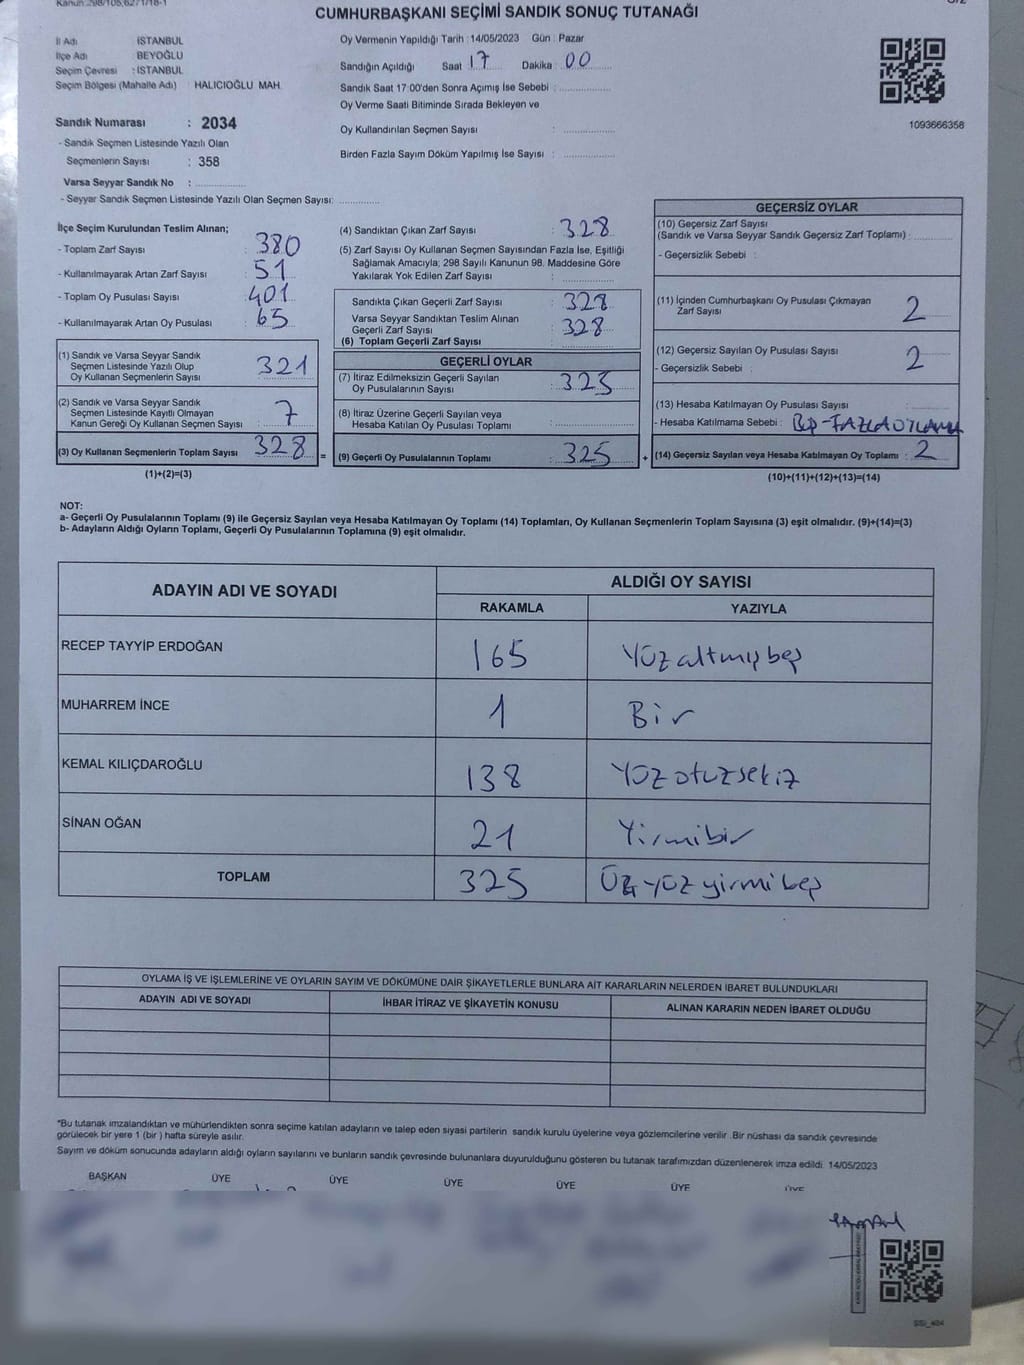 CUMHURBAŞKANI SEÇİMİ SANDIK SONUÇ TUTANAĞI
İl Adı İSTANBUL
İlçe Adı BEYOĞLU
Seçim Çevresi : İSTANBUL
Seçim Bölgesi (Mahalle Adı) : HALICIOĞLU MAH.
Oy Vermenin Yapıldığı Tarih : 14/05/2023 Gün : Pazar
Sandığın Açıldığı Saat 17 Dakika : 00
Sandık Saat 17:00'den Sonra Açımış İse Sebebi :
Oy Verme Saati Bitiminde Sırada Bekleyen ve
Oy Kullandırılan Seçmen Sayısı :
Birden Fazla Sayım Döküm Yapılmış İse Sayısı :
1093666358
Sandık Numarası : 2034
- Sandık Seçmen Listesinde Yazılı Olan
Seçmenlerin Sayısı : 358
Varsa Seyyar Sandık No :
- Seyyar Sandık Seçmen Listesinde Yazılı Olan Seçmen Sayısı:
İlçe Seçim Kurulundan Teslim Alınan;
- Toplam Zarf Sayısı : 380
- Kullanılmayarak Artan Zarf Sayısı : 51
- Toplam Oy Pusulası Sayısı : 401
- Kullanılmayarak Artan Oy Pusulası : 65
(1) Sandık ve Varsa Seyyar Sandık
Seçmen Listesinde Yazılı Olup
Oy Kullanan Seçmenlerin Sayısı : 321
(2) Sandık ve Varsa Seyyar Sandık
Seçmen Listesinde Kayıtlı Olmayan
Kanun Gereği Oy Kullanan Seçmen Sayısı : 7
(3) Oy Kullanan Seçmenlerin Toplam Sayısı : 328 =
(1)+(2)=(3)
(4) Sandıktan Çıkan Zarf Sayısı : 328
(5) Zarf Sayısı Oy Kullanan Seçmen Sayısından Fazla İse, Eşitliği
Sağlamak Amacıyla; 298 Sayılı Kanunun 98. Maddesine Göre
Yakılarak Yok Edilen Zarf Sayısı :
Sandıkta Çıkan Geçerli Zarf Sayısı : 328
Varsa Seyyar Sandıktan Teslim Alınan
Geçerli Zarf Sayısı : 328
(6) Toplam Geçerli Zarf Sayısı :
GEÇERLİ OYLAR
(7) İtiraz Edilmeksizin Geçerli Sayılan
Oy Pusulalarının Sayısı : 325
(8) İtiraz Üzerine Geçerli Sayılan veya
Hesaba Katılan Oy Pusulası Toplamı :
(9) Geçerli Oy Pusulalarının Toplamı : 325 +
GEÇERSİZ OYLAR
(10) Geçersiz Zarf Sayısı
(Sandık ve Varsa Seyyar Sandık Geçersiz Zarf Toplamı) :
- Geçersizlik Sebebi :
(11) İçinden Cumhurbaşkanı Oy Pusulası Çıkmayan
Zarf Sayısı : 2
(12) Geçersiz Sayılan Oy Pusulası Sayısı : 2
- Geçersizlik Sebebi :
(13) Hesaba Katılmayan Oy Pusulası Sayısı :
- Hesaba Katılmama Sebebi :
(14) Geçersiz Sayılan veya Hesaba Katılmayan Oy Toplamı : 2
(10)+(11)+(12)+(13)=(14)
NOT:
a- Geçerli Oy Pusulalarının Toplamı (9) ile Geçersiz Sayılan veya Hesaba Katılmayan Oy Toplamı (14) Toplamları, Oy Kullanan Seçmenlerin Toplam Sayısına (3) eşit olmalıdır. (9)+(14)=(3)
b- Adayların Aldığı Oyların Toplamı, Geçerli Oy Pusulalarının Toplamına (9) eşit olmalıdır.
ADAYIN ADI VE SOYADI ALDIĞI OY SAYISI
RAKAMLA YAZIYLA
RECEP TAYYİP ERDOĞAN 165 Yüzaltmışbeş
MUHARREM İNCE 1 Bir
KEMAL KILIÇDAROĞLU 138 Yüzotuzsekiz
SİNAN OĞAN 21 Yirmibir
TOPLAM 325 Üçyüzyirmibeş
OYLAMA İŞ VE İŞLEMLERİNE VE OYLARIN SAYIM VE DÖKÜMÜNE DAİR ŞİKAYETLERLE BUNLARA AİT KARARLARIN NELERDEN İBARET BULUNDUKLARI
ADAYIN ADI VE SOYADI İHBAR İTİRAZ VE ŞİKAYETİN KONUSU ALINAN KARARIN NEDEN İBARET OLDUĞU
*Bu tutanak imzalandıktan ve mühürlendikten sonra seçime katılan adayların ve talep eden siyasi partilerin sandık kurulu üyelerine veya gözlemcilerine verilir. Bir nüshası da sandık çevresinde
görülecek bir yere 1 (bir) hafta süreyle asılır.
Sayım ve döküm sonucunda adayların aldığı oyların sayılarını ve bunların sandık çevresinde bulunanlara duyurulduğunu gösteren bu tutanak tarafımızdan düzenlenerek imza edildi. 14/05/2023
BAŞKAN ÜYE ÜYE ÜYE ÜYE ÜYE ÜYE